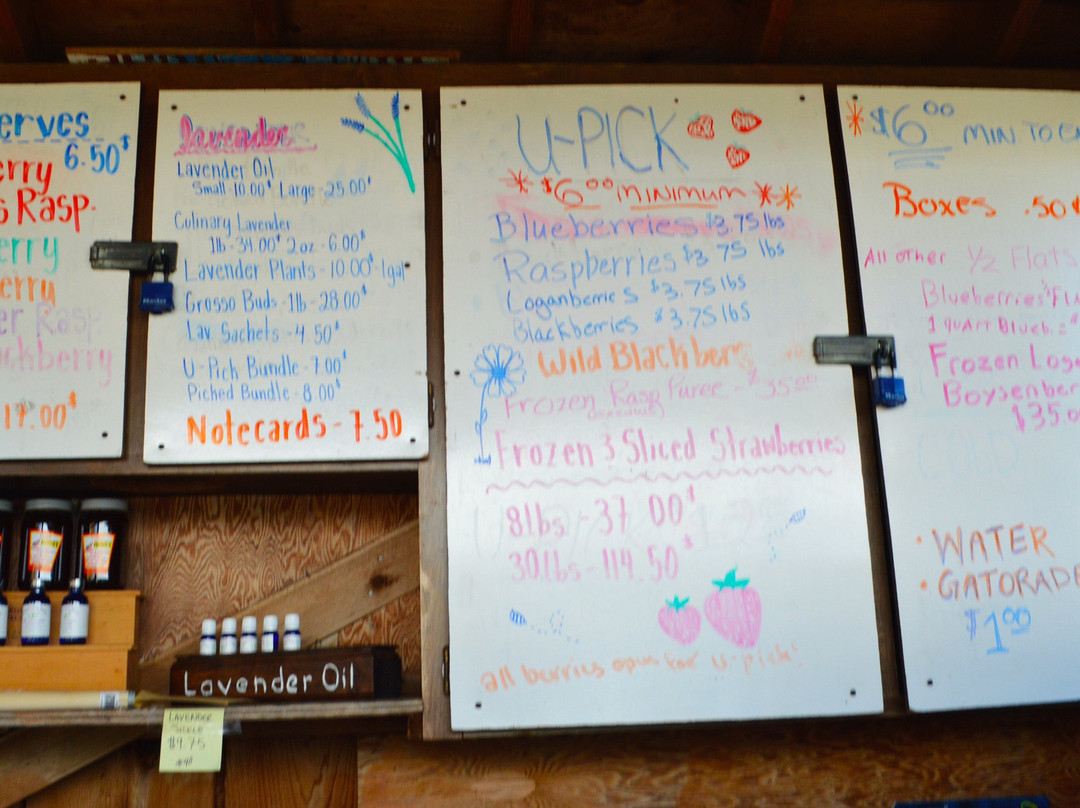 erves
6.50$
erry
s Rasp.
erry
erry
er Rasp.
ackberry
17.00$
lavender
Lavender Oil
Small-10.00$ Large-25.00$
Culinary Lavender
1lb-34.00$ 2oz-6.00$
Lavender Plants-10.00$-1gal
Grosso Buds-1lb-28.00$
Lav. Sachets-4.50$
U-Pick Bundle-7.00$
Picked Bundle-8.00$
Notecards-7.50
U-PICK
$6.00 minimum
Blueberries $3.75 lbs
Raspberries $3.75 lbs
Loganberries $3.75 lbs
Blackberries $3.75 lbs
Wild Blackber
Frozen Rasp Puree - $35.00
Frozen & Sliced Strawberries
8lbs - 37.00$
30lbs-114.50$
all berries open for u-pick!
$6.00 MIN TO
Boxes .50
All other 1/2 Flats
Blueberries
1 quart Blueb.
Frozen Loga
Boysenber
$35.0
• WATER
• GATORADE
$1.00
Lavender Oil
LAVENDER
$9.75